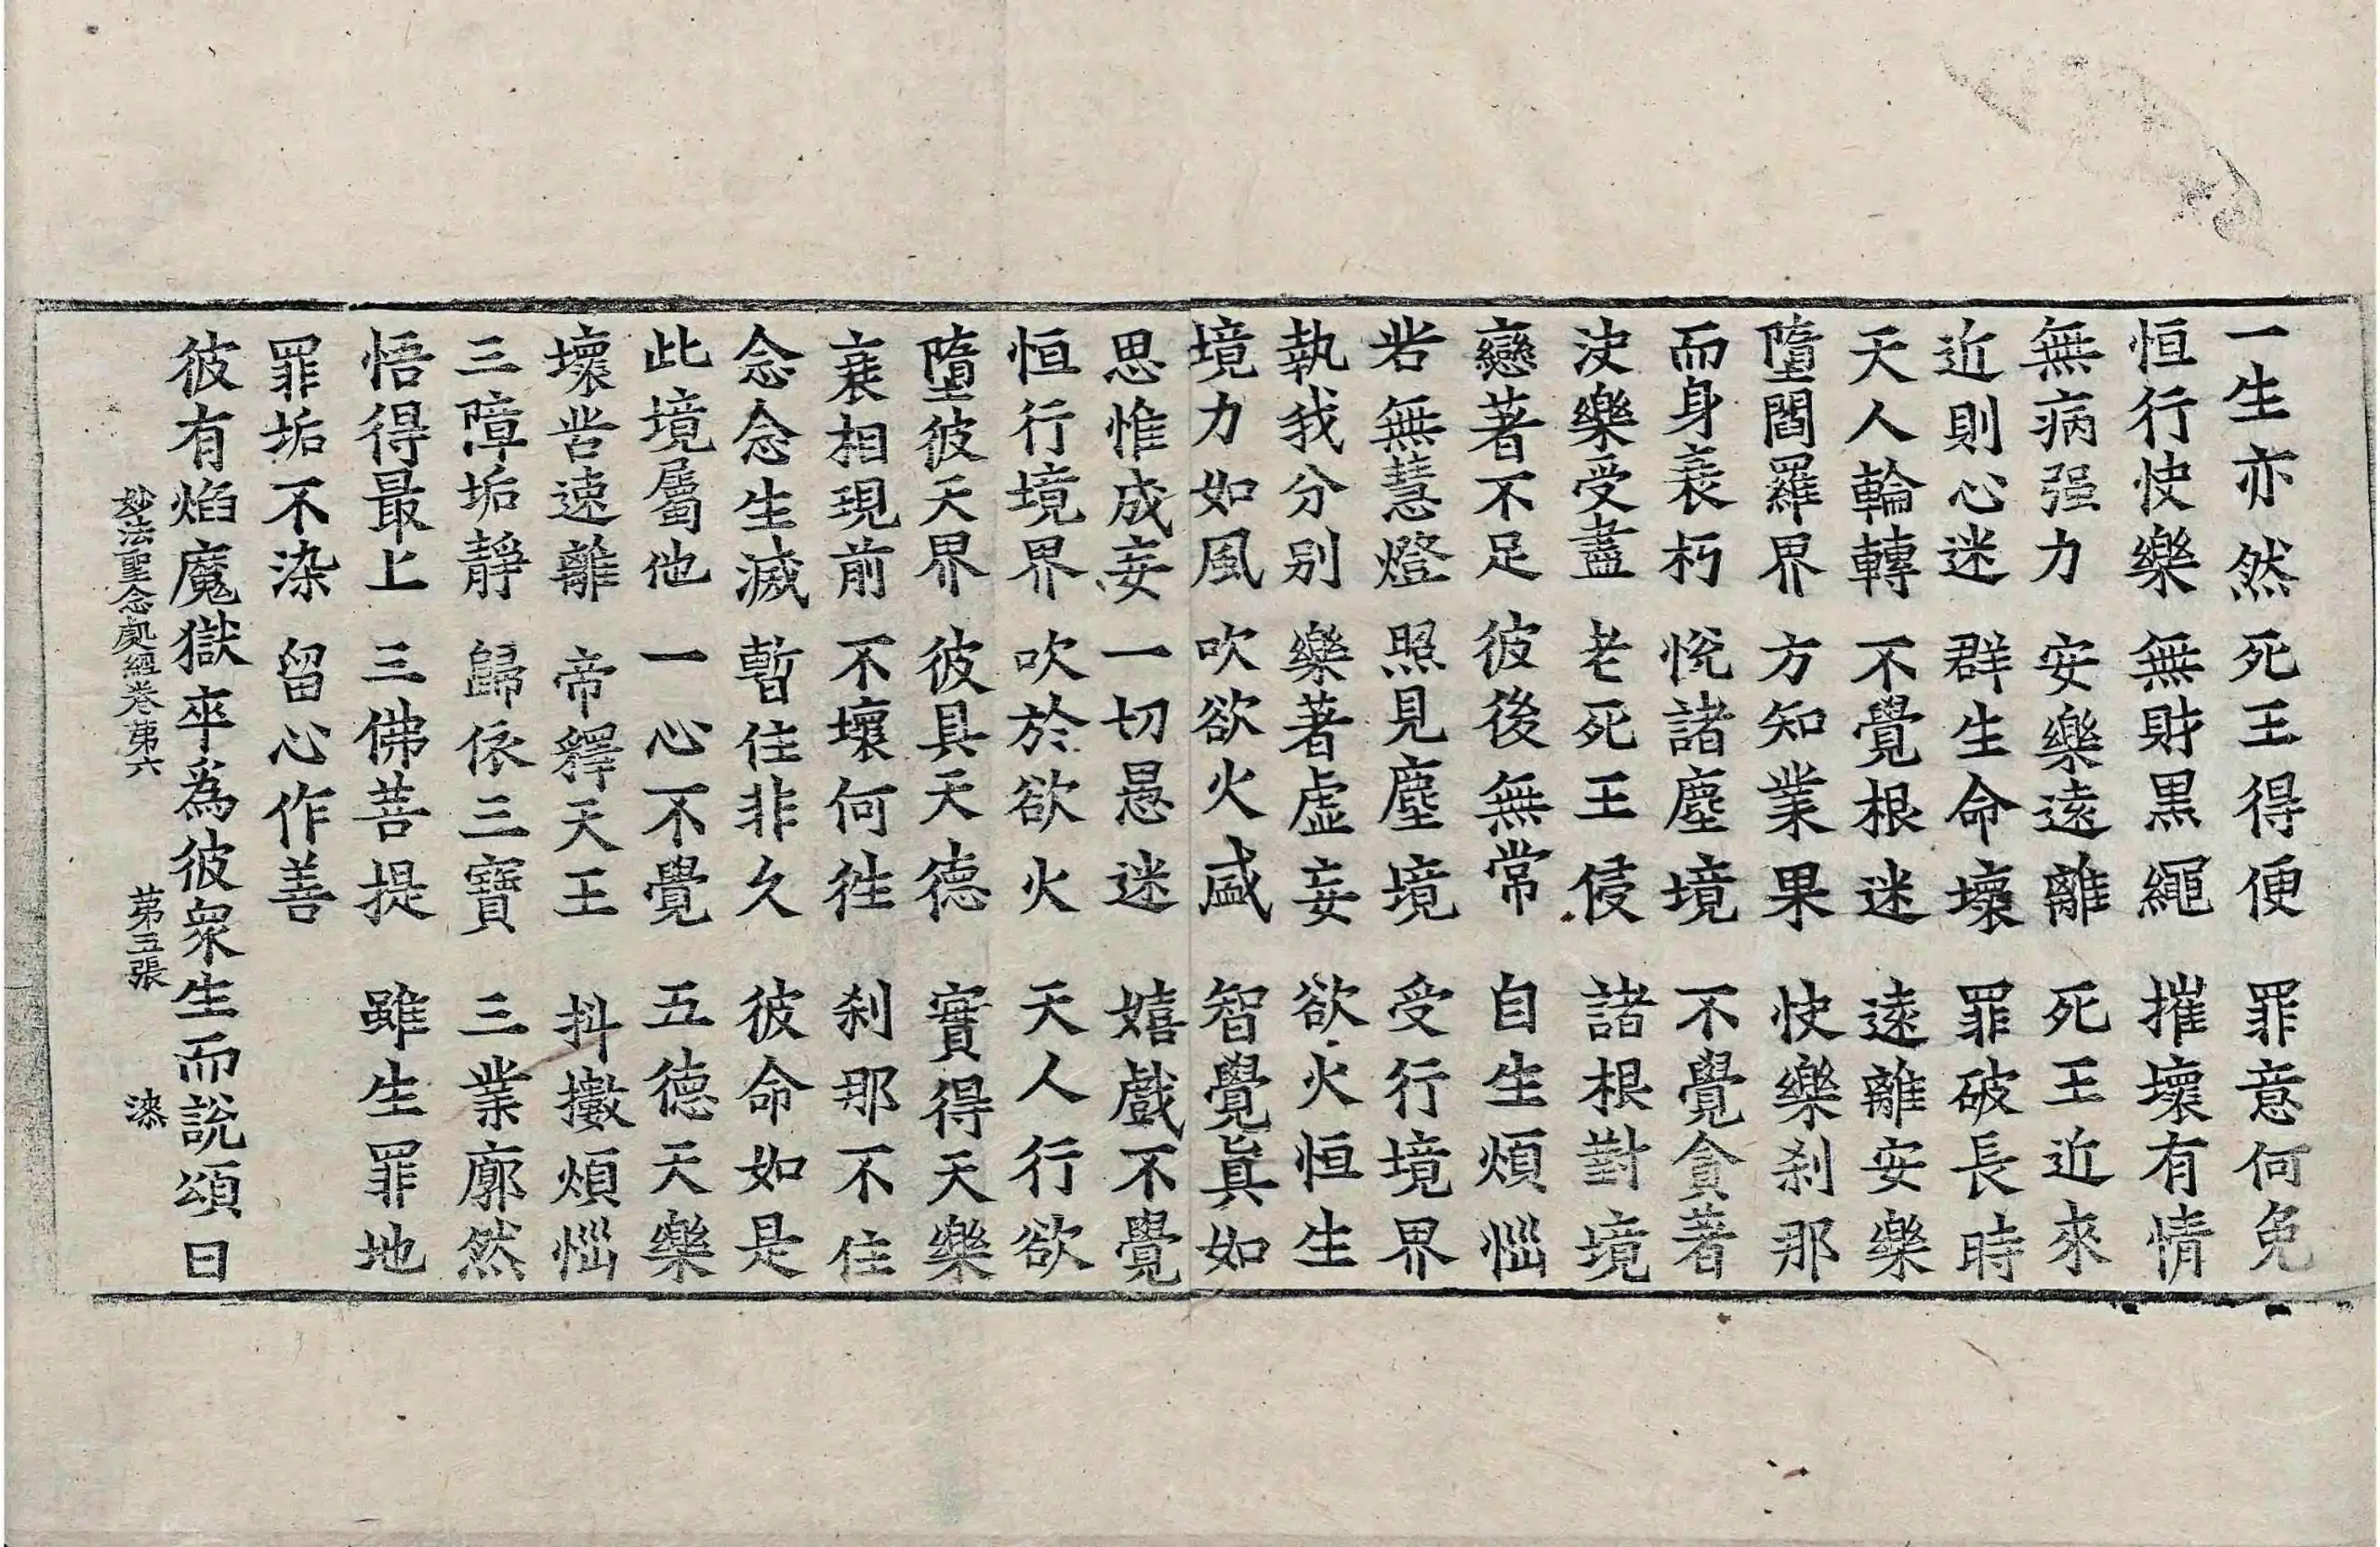 一生亦然　死王得便　罪意何免
恒行快樂　無財黒繩　摧壞有情
無病强力　安樂遠離　死王近來
近則心迷　群生命壞　罪破長時
天人輪轉　不覺根迷　遠離安樂
墮閻羅界　方知業果　快樂刹那
而身衰朽　悅諸塵境　不覺貪著
決樂受盡　老死王侵　諸根對境
戀著不足　彼後無常　自生煩惱
若無慧燈　照見塵境　受行境界
執我分别　樂著虚妄　欲火恒生
境力如風　吹欲火盛　智覺眞如
思惟成妄　一切愚迷　嬉戲不覺
恒行境界　吹於欲火　天人行欲
墮彼天界　彼具天德　實得天樂
衰相現前　不壞何徃　刹那不住
念念生滅　暫住非久　彼命如是
此境屬他　一心不覺　五德天樂
壞苦速離　帝釋天王　抖擻煩惱
三障垢靜　歸依三寶　三業廓然
悟得最上　三佛菩提　雖生罪地
罪垢不染　留心作善
彼有焰魔獄卒爲彼衆生而說頌曰
妙法聖念處經卷苐六　苐五張　漆